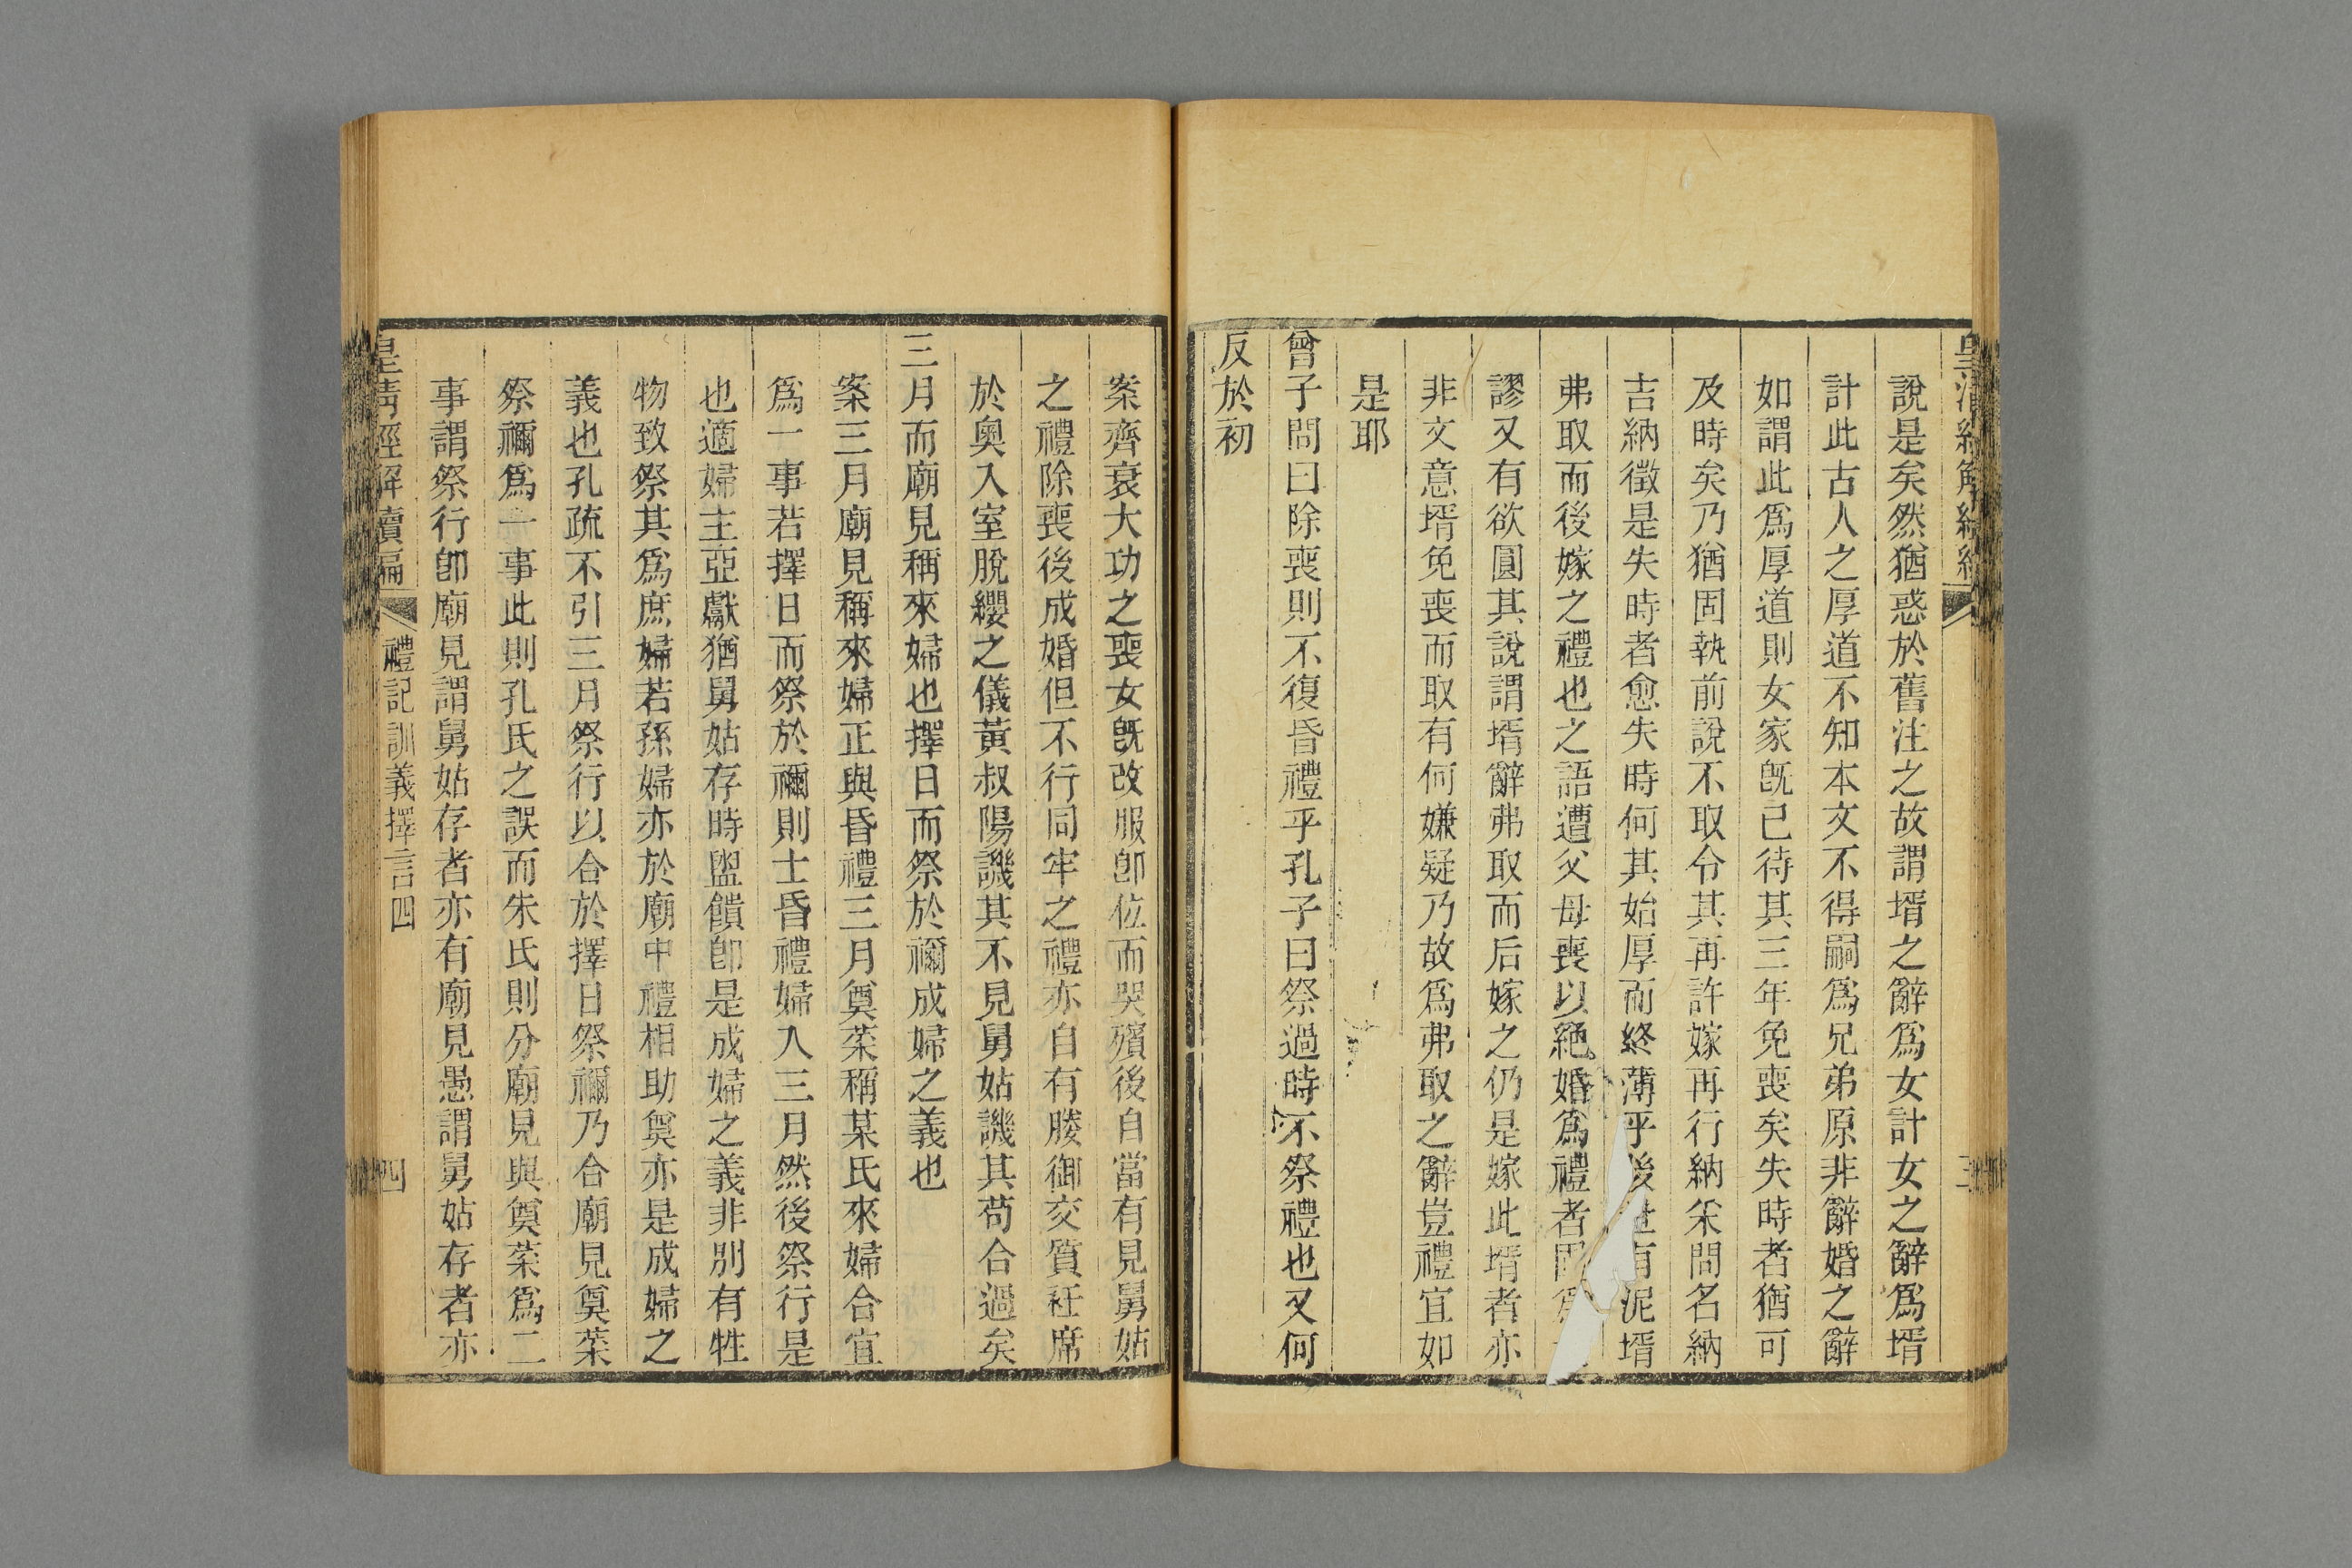 說是矣然猶惑於舊注之故謂壻之辭爲女計女之辭爲壻
計此古人之厚道不知本文不得嗣爲兄弟原非辭婚之辭
如謂此爲厚道則女家旣已待其三年免喪矣失時者猶可
及時矣乃猶固執前說不取令其再許嫁再行納采問名納
吉納徵是失時者愈失時何其始厚而終薄乎後世有泥壻
弗取而後嫁之禮也之語遭父母喪以絶婚爲禮者固爲
謬又有欲圓其說謂壻辭弗取而后嫁之仍是嫁此壻者亦
非文意壻免喪而取有何嫌疑乃故爲弗取之辭豈禮宜如
是耶
曾子問曰除喪則不復昏禮乎孔子曰祭過時不祭禮也又何
反於初
案齊衰大功之喪女旣改服卽位而哭殯後自當有見舅姑
之禮除喪後成婚但不行同牢之禮亦自有媵御交質衽席
於奧入室脫纓之儀黃叔陽譏其不見舅姑譏其苟合過矣
三月而廟見稱來婦也擇日而祭於禰成婦之義也
案三月廟見稱來婦正與昏禮三月奠菜稱某氏來婦合宜
爲一事若擇日而祭於禰則士昏禮婦入三月然後祭行是
也適婦主亞獻猶舅姑存時盥饋卽是成婦之義非別有牲
物致祭其爲庶婦若孫婦亦於廟中禮相助奠亦是成婦之
義也孔疏不引三月祭行以合於擇日祭禰乃合廟見奠菜
祭禰爲一事此則孔氏之誤而朱氏則分廟見與奠菜爲二
事謂祭行卽廟見謂舅姑存者亦有廟見愚謂舅姑存者亦
皇清經解續編 禮記訓義擇言四 四